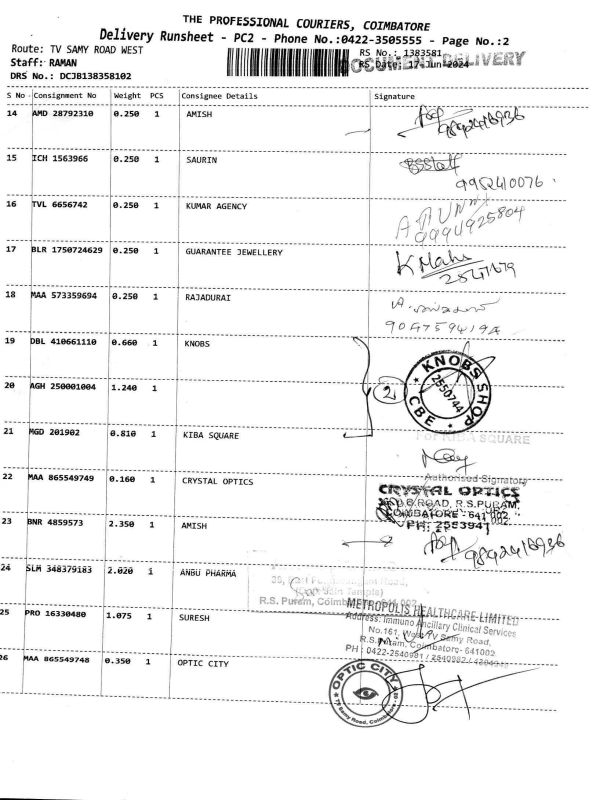 THE PROFESSIONAL COURIERS, COIMBATORE
Delivery Runsheet - PC2 - Phone No.:0422-3505555 - Page No.:2
Route: TV SAMY ROAD WEST
RS No.: 1383581
Staff: RAMAN
DOCUMENT DELIVERY
RS Date: 17-Jun-2024
DRS No.: DCJB138358102
S No Consignment No Weight PCS Consignee Details Signature
14 AMD 28792310 0.250 1 AMISH
15 ICH 1563966 0.250 1 SAURIN
9952410076.
16 TVL 6656742 0.250 1 KUMAR AGENCY
9994925804
17 BLR 1750724629 0.250 1 GUARANTEE JEWELLERY
K Maha
18 MAA 573359694 0.250 1 RAJADURAI
19 DBL 410661110 0.660 1 KNOBS
KNOBS SHOP
2550744
CBE
2
20 AGH 250001004 1.240 1
21 MGD 201902 0.810 1 KIBA SQUARE
For KIBA SQUARE
Authorised Signatory
22 MAA 865549749 0.160 1 CRYSTAL OPTICS
CRYSTAL OPTICS
D.B.ROAD, R.S.PURAM,
COIMBATORE - 641 002.
PH: 2553941
23 BNR 4859573 2.350 1 AMISH
24 SLM 348379183 2.020 1 ANBU PHARMA
R.S. Puram, Coimbatore - 641 002
25 PRO 16330480 1.075 1 SURESH
METROPOLIS HEALTHCARE LIMITED
Address: Immuno Ancillary Clinical Services
No.161, West TV Samy Road,
R.S.Puram, Coimbatore- 641002
PH : 0422-2540981 /
26 MAA 865549748 0.350 1 OPTIC CITY
OPTIC CITY
Samy Road, Coimbatore